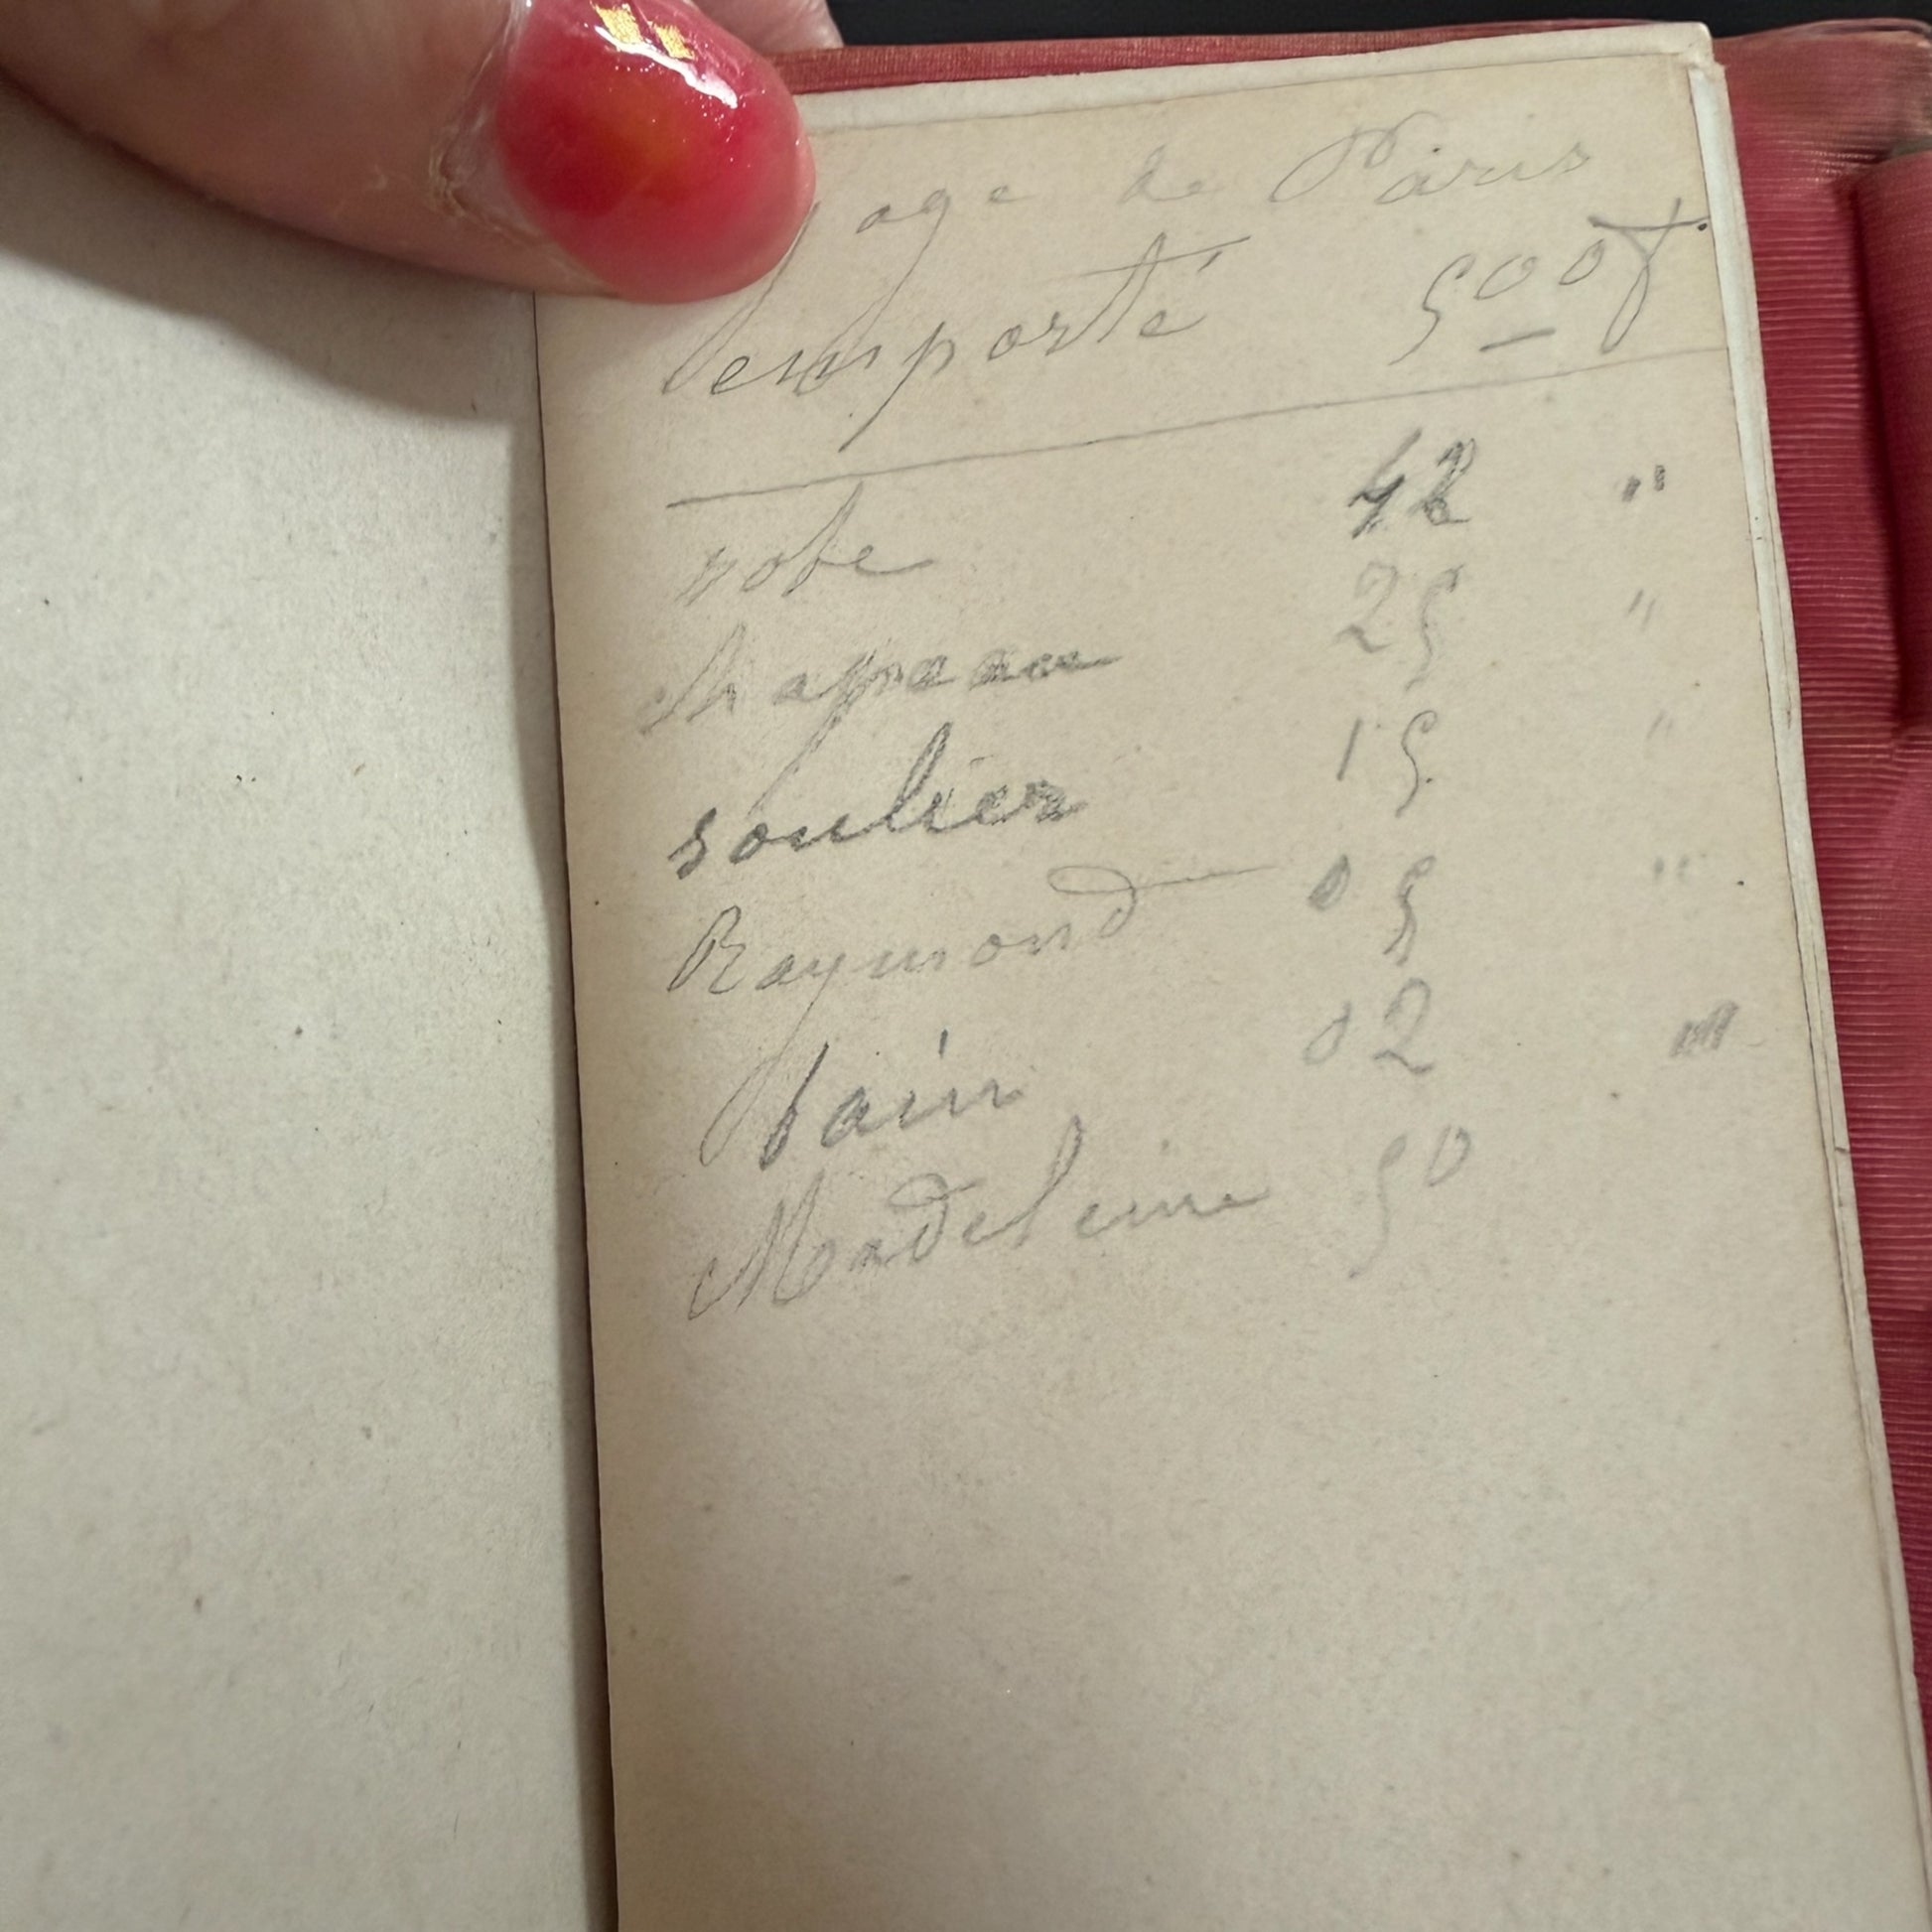 yage de Paris
emporté 500f
robe 42 "
chapeau 25 "
soulier 15 "
Raymond 05 "
bain 02 "
Madeleine 50